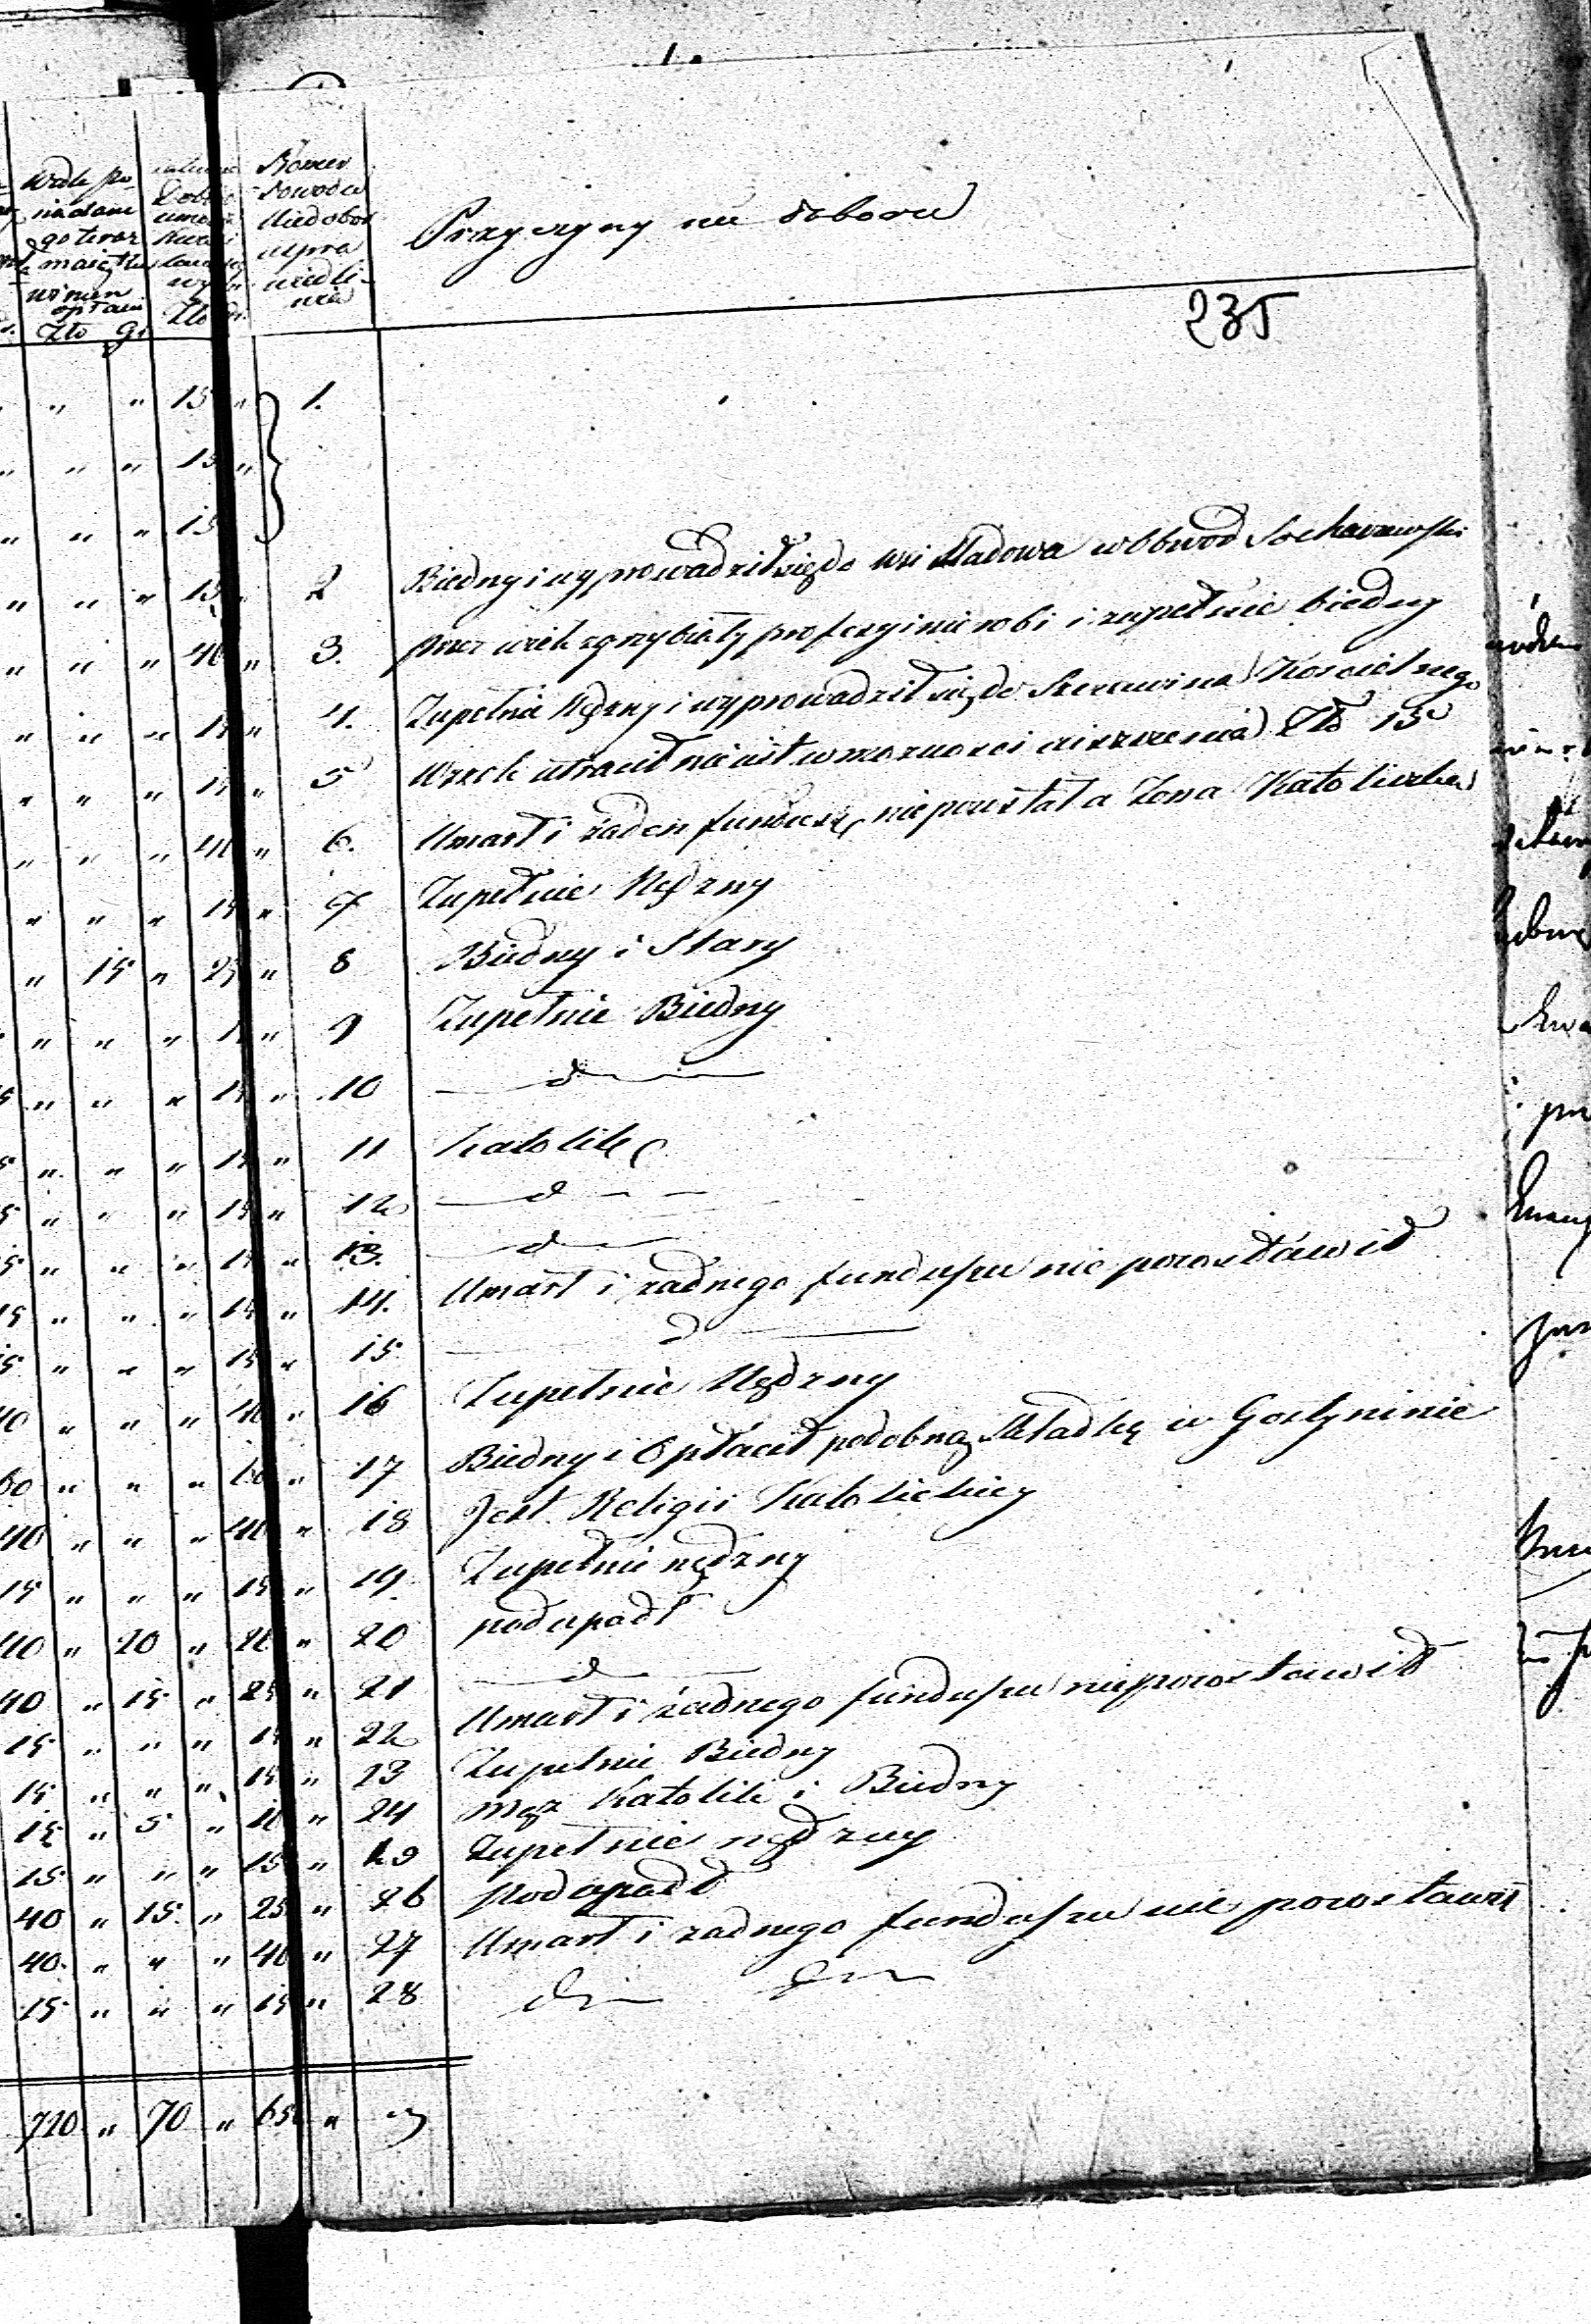 Przyczyny nie doboru
235
" " 15 " 1.
" " " 15 "
" " " 15
" " " 15 2 Biedny i wyprowadził się do wsi Sładowa w Obwod Sochaczewski
" " " 40 " 3. przez wiek zgrzybiały profesyi nie robi i zupełnie biedny
" " " 15 " 4. Zupełnie Nędzny i wyprowadził się do Szczawina Kościelnego
" " " 15 " 5 Wzrok utracił nie jest w możności uiszczenia Zło 15
" " " 40 " 6. Umarł i żaden fundusz niepozostał a Żona Katoliczka
" " " 15 " 7 Zupełnie Nędzny
" 15 " 25 " 8 Biedny i Stary
" " " 15 " 9 Zupełnie Biedny
" " " 15 " 10 d
" " " 15 " 11 Katolik
" " " 15 " 12 d
" " " 15 " 13. d
15 " " " 15 " 14. Umarł i żadnego funduszu nie pozostawił
15 " " " 15 " 15 d
40 " " " 40 " 16 Zupełnie Nędzny
60 " " " 60 " 17 Biedny i Opłacił podobną Składkę w Gostyninie
40 " " " 40 " 18 Jest Religii Katolickiey
15 " " " 15 " 19. Zupełnie nędzny
40 " 20 " 20 " 20 podupadł
40 " 15 " 25 " 21 d
15 " " " 15 " 22 Umarł i żadnego funduszu niepozostawił
15 " " " 15 " 23 Zupełnie Biedny
15 " 5 " 10 " 24 Mąż Katolik i Biedny
15 " " " 15 " 25 Zupełnie nędzny
40 " 15 " 25 " 26 Podupadł
40 " " " 40 " 27 Umarł i żadnego funduszu nie pozostawił
15 " " " 15 " 28
720 " 70 " 650 "